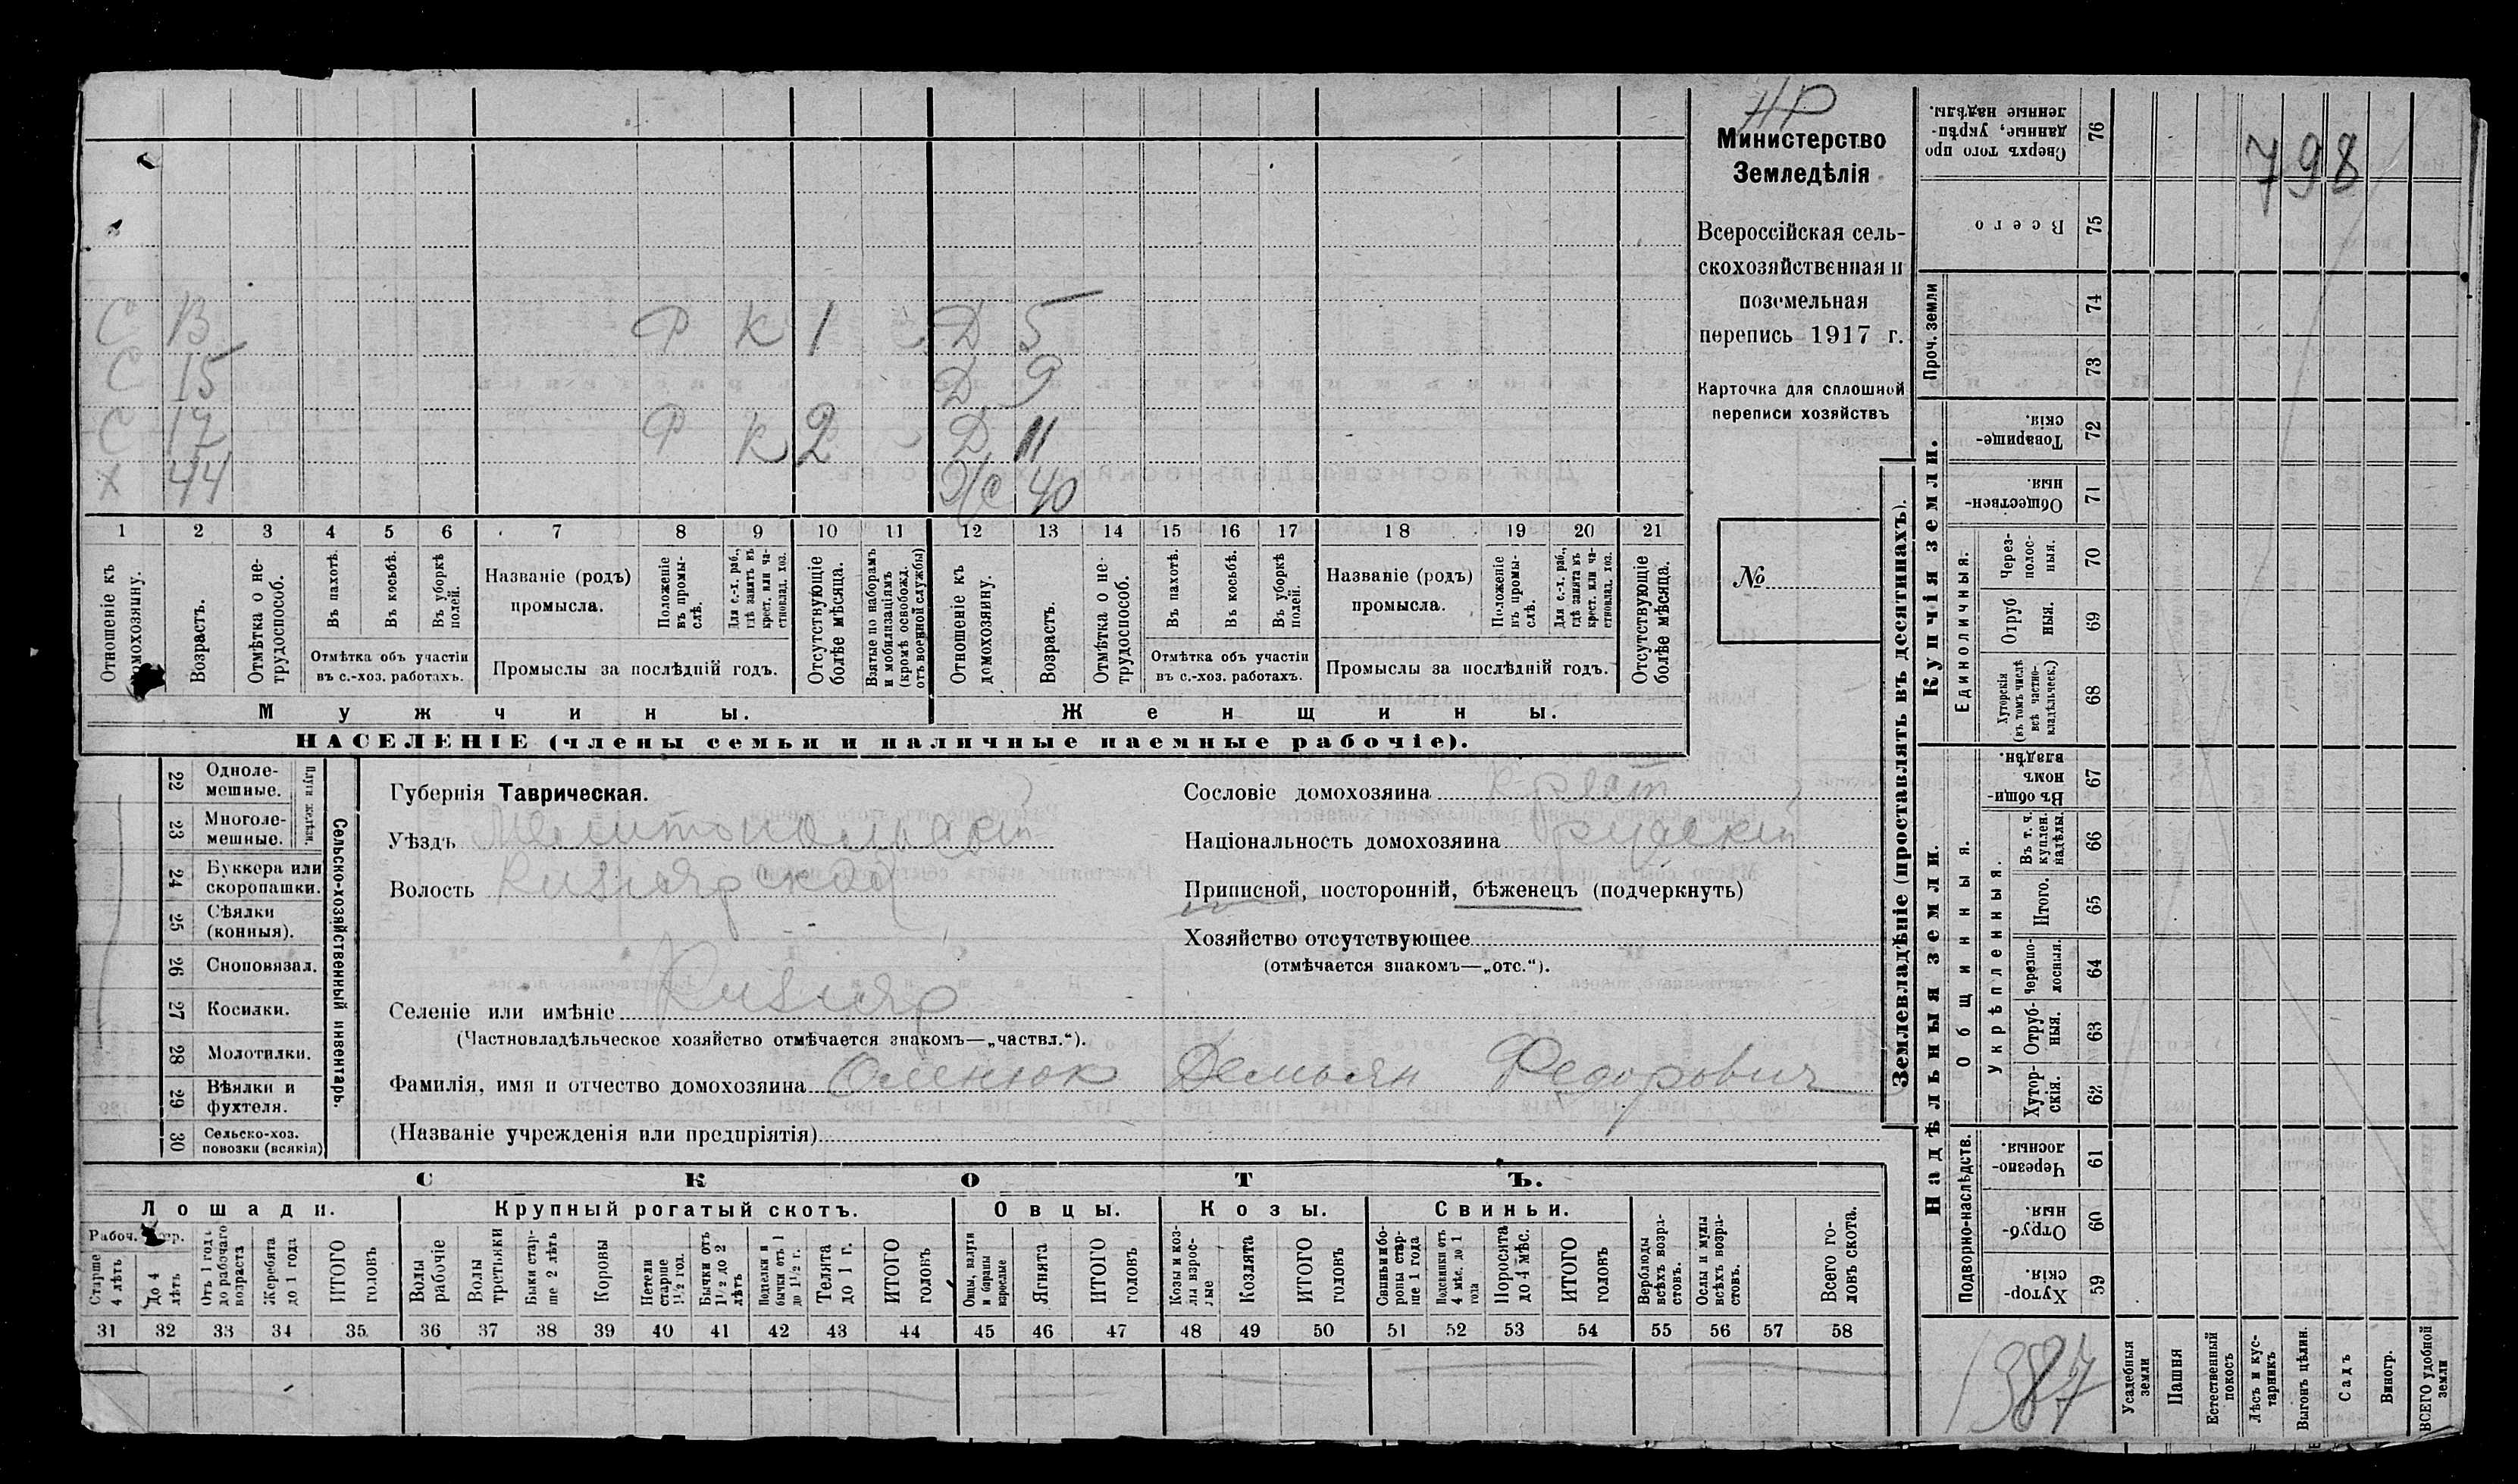 НР
Министерство
Земледѣлія
Всероссійская сель-
скохозяйственная и
поземельная
перепись 1917 г.
Карточка для сплошной
переписи хозяйствъ
№
798
С В Р К 1 Д 5
С 15 Д 9
С 17 Р К 2 Д 11
Х 44 Ж 40
1 2 3 4 5 6 7 8 9 10 11 12 13 14 15 16 17 18 19 20 21
Отношеніе къ домохозяину.
Возрастъ.
Отмѣтка о не-трудоспособ.
Въ пахотѣ.
Въ косьбѣ.
Въ уборкѣ полей.
Отмѣтка объ участіи
въ с.-хоз. работахъ.
Названіе (родъ)
промысла.
Положеніе въ промы-слѣ.
Для с.-х. раб., гдѣ занятъ въ крест. или ча-стновлад. хоз.
Промыслы за послѣдній годъ.
Отсутствующіе болѣе мѣсяца.
Взятые по наборамъ и мобилизаціямъ (кромѣ освобожд. отъ военной службы)
Отношеніе къ домохозяину.
Возрастъ.
Отмѣтка о не-трудоспособ.
Въ пахотѣ.
Въ косьбѣ.
Въ уборкѣ полей.
Отмѣтка объ участіи
въ с.-хоз. работахъ.
Названіе (родъ)
промысла.
Положеніе въ промы-слѣ.
Для с.-х. раб., гдѣ занята въ крест. или ча-стновлад. хоз.
Промыслы за послѣдній годъ.
Отсутствующіе болѣе мѣсяца.
Мужчины. Женщины.
НАСЕЛЕНІЕ (члены семьи и наличные наемные рабочіе).
22 Однолемешные.
23 Многолемешные.
Плуги желѣзн.
24 Буккера или скоропашки.
25 Сѣялки (конныя).
26 Сноповязал.
27 Косилки.
28 Молотилки.
29 Вѣялки и фухтеля.
30 Сельско-хоз. повозки (всякія)
Сельско-хозяйственный инвентарь.
Губернія Таврическая.
Уѣздъ Мелитопольскій
Волость Кизіярская
Селеніе или имѣніе Кизіяр
(Частновладѣльческое хозяйство отмѣчается знакомъ—„частвл.“).
Фамилія, имя и отчество домохозяина Оленюк Демьян Федорович
(Названіе учрежденія или предпріятія)
Сословіе домохозяина крест
Національность домохозяина русскій
Приписной, посторонній, бѣженецъ (подчеркнуть)
Хозяйство отсутствующее
(отмѣчается знакомъ—„отс.“).
СКОТЪ.
Лошади. Крупный рогатый скотъ. Овцы. Козы. Свиньи.
Старше 4 лѣтъ
До 4 лѣтъ
Отъ 1 года до рабочаго возраста
Жеребята до 1 года
ИТОГО головъ
Волы рабочіе
Волы третьяки
Быки стар-ше 2 лѣтъ
Коровы
Нетели старше 1½ год.
Бычки отъ 1½ до 2 лѣтъ
Подтелки и бычки отъ 1 до 1½ г.
Телята до 1 г.
ИТОГО головъ
Овцы, валухи и бараны взрослые
Ягнята
ИТОГО головъ
Козы и коз-лы взрос-лые
Козлята
ИТОГО головъ
Свиньи и бо-ровы стар-ше 1 года
Подсвинки отъ 4 мѣс. до 1 года
Поросята до 4 мѣс.
ИТОГО головъ
Верблюды всѣхъ возра-стовъ.
Ослы и мулы всѣхъ возра-стовъ.
Всего го-ловъ скота.
31 32 33 34 35 36 37 38 39 40 41 42 43 44 45 46 47 48 49 50 51 52 53 54 55 56 57 58
Землевладѣніе (проставлять въ десятинахъ).
Надѣльныя земли.
Купчія земли.
Проч. земли
Подворно-наслѣдств.
Общинныя.
Укрѣпленныя.
Единоличныя.
59 Хутор-скія.
60 Отруб-ныя.
61 Черезпо-лосныя.
62 Хутор-скія.
63 Отруб-ныя.
64 Черезпо-лосныя.
65 Итого.
66 Въ т. ч. куплен. надѣлы.
67 Въ общи-номъ владѣн.
68 Хуторскія (въ томъ числѣ всѣ частно-владѣльческ.)
69 Отруб ныя.
70 Через-полос-ныя.
71 Обществен-ныя.
72 Товарище-скія.
73
74
75 Всего
76 Сверхъ того про данные, укрѣп-ленные надѣлы.
1387
Усадебныя земли
Пашня
Естественный покосъ
Лѣсъ и кус-тарникъ
Выгонъ цѣлин.
Садъ
Виногр.
ВСЕГО удобной земли